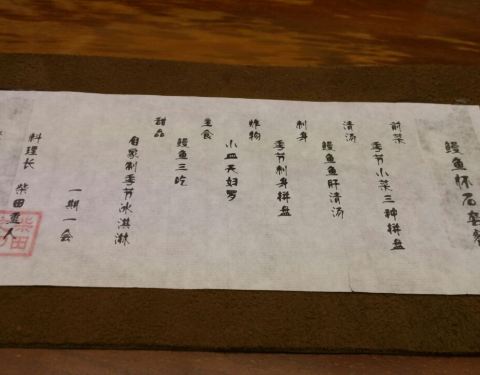 鳗鱼怀石套餐
前菜
季节小菜三种拼盘
清汤
鳗鱼肝清汤
刺身
季节刺身拼盘
炸物
小皿天妇罗
主食
鳗鱼三吃
甜品
自家制季节冰淇淋
一期一会
料理长 柴田直人
柴田